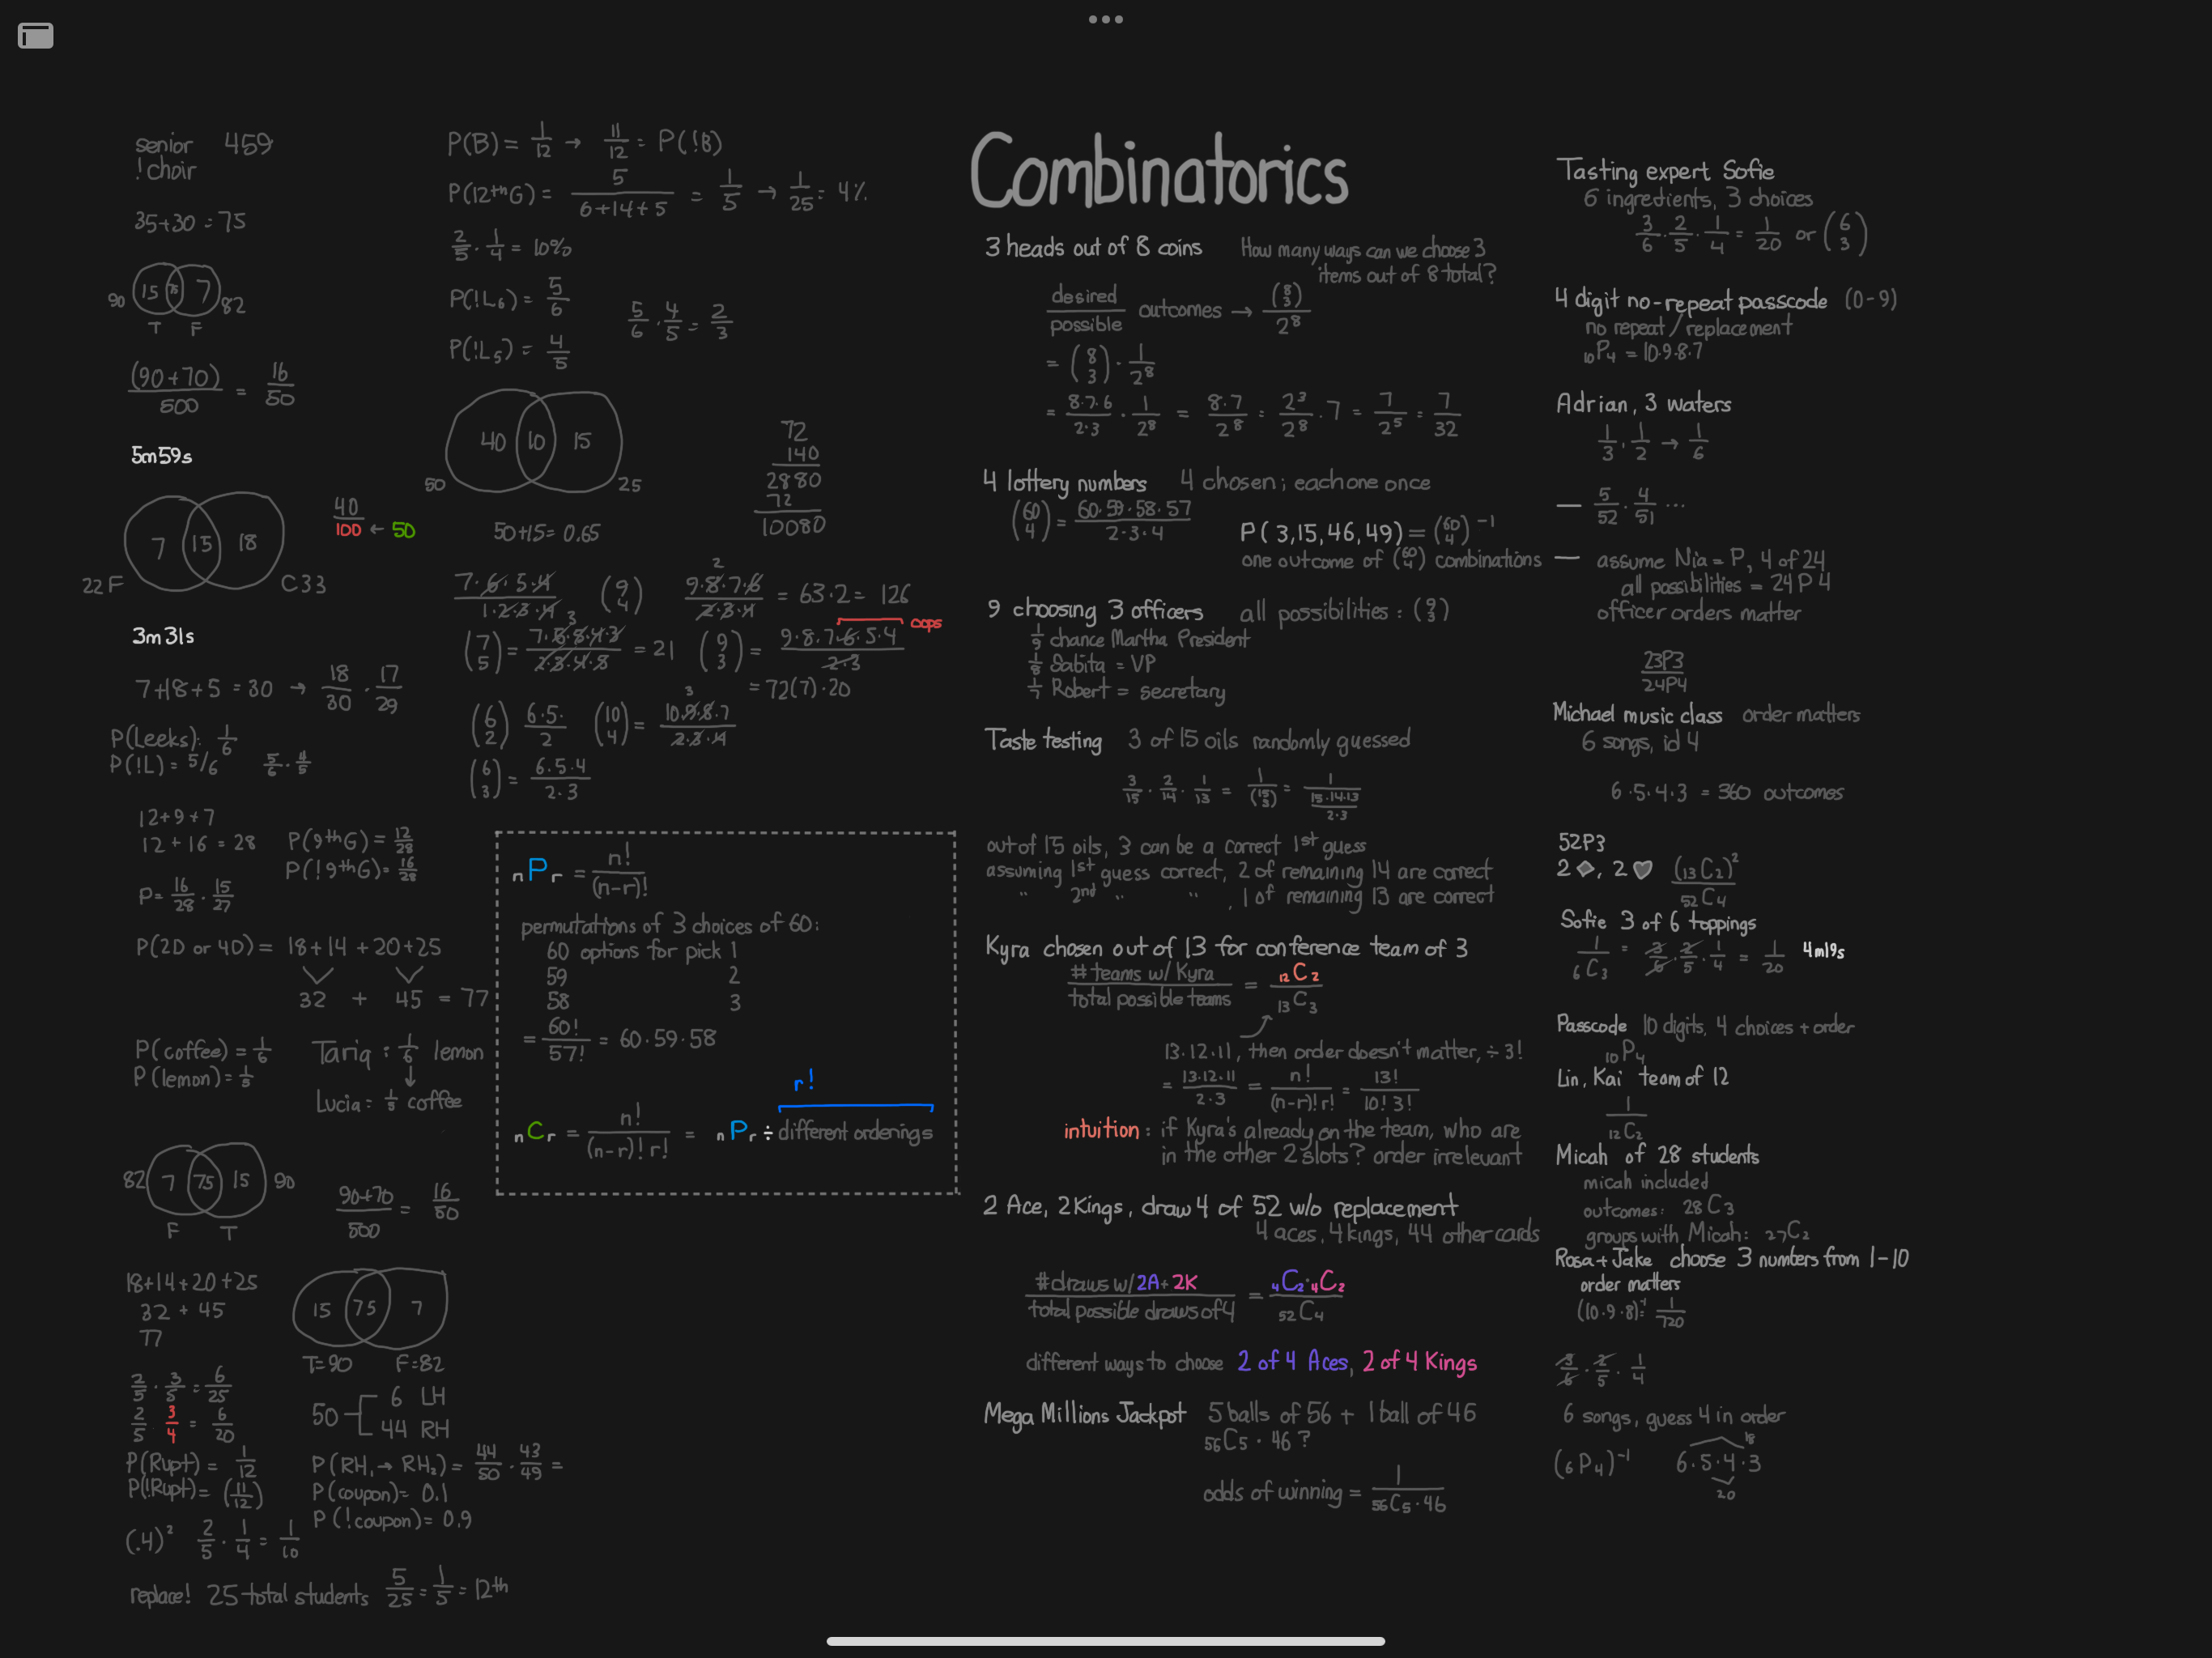 senior 459
!choir
35+30 = 75
90 15 75 7 82
T F
(90+70)/500 = 16/50
5m59s
7 15 18
22F C33
40/100 ← 50
3m31s
7+18+5 = 30 → 18/30 · 17/29
P(Leeks): 1/6
P(!L) = 5/6 5/6 · 4/5
12+9+7
12+16 = 28 P(9thG) = 12/28
P(!9thG) = 16/28
P= 16/28 · 15/27
P(2D or 4D) = 18+14+20+25
32 + 45 = 77
P(coffee) = 1/6 Tariq : 1/6 lemon
P(lemon) = 1/5 ↓
Lucia = 1/5 coffee
82 7 75 15 90
F T
90+70/500 = 16/50
18+14+20+25
32 + 45
77
15 75 7
T=90 F=82
2/5 · 3/5 = 6/25
2/5 3/4 = 6/20
50 6 LH
44 RH
P(Rupt) = 1/12
P(!Rupt) = (11/12)
P(RH₁ → RH₂) = 44/50 · 43/49 =
P(coupon) = 0.1
P(!coupon) = 0.9
(.4)² 2/5 · 1/4 = 1/10
replace! 25 total students 5/25 = 1/5 = 12th
P(B) = 1/12 → 11/12 = P(!B)
P(12thG) = 5/(6+14+5) = 1/5 → 1/25 = 4%
2/5 · 1/4 = 10%
P(!L₆) = 5/6
P(!L₅) = 4/5
5/6 · 4/5 = 2/3
40 10 15
50 25
50+15 = 0.65
72
140
2880
72
10080
7·6·5·4/1·2·3·4 (9 4) 9·8·7·6/2·3·4 = 63·2 = 126
(7 5) = 7·6·5·4·3/2·3·4·5 = 21 (9 3) = 9·8·7·6·5·4/2·3 oops
= 72(7)·20
(6 2) 6·5·/2 (10 4) = 10·9·8·7/2·3·4
(6 3) = 6·5·4/2·3
nPr = n!/(n-r)!
permutations of 3 choices of 60:
60 options for pick 1
59 2
58 3
= 60!/57! = 60·59·58
r!
nCr = n!/(n-r)!r! = nPr ÷ different orderings
Combinatorics
3 heads out of 8 coins How many ways can we choose 3
items out of 8 total?
desired/possible outcomes → (8 3)/2⁸
= (8 3) · 1/2⁸
= 8·7·6/2·3 · 1/2⁸ = 8·7/2⁸ = 2³/2⁸ · 7 = 7/2⁵ = 7/32
4 lottery numbers 4 chosen; each one once
(60 4) = 60·59·58·57/2·3·4
P(3,15,46,49) = (60 4)⁻¹
one outcome of (60 4) combinations
9 choosing 3 officers all possibilities: (9 3)
1/9 chance Martha President
1/8 Sabita = VP
1/7 Robert = secretary
Taste testing 3 of 15 oils randomly guessed
3/15 · 2/14 · 1/13 = 1/(15 3) = 1/(15·14·13/2·3)
out of 15 oils, 3 can be a correct 1st guess
assuming 1st guess correct, 2 of remaining 14 are correct
" 2nd " " , 1 of remaining 13 are correct
Kyra chosen out of 13 for conference team of 3
# teams w/ Kyra/total possible teams = 12C2/13C3
13·12·11, then order doesn't matter, ÷3!
= 13·12·11/2·3 = n!/(n-r)!r! = 13!/10!3!
intuition: if Kyra's already on the team, who are
in the other 2 slots? order irrelevant
2 Ace, 2 Kings, draw 4 of 52 w/o replacement
4 aces, 4 kings, 44 other cards
# draws w/ 2A+2K/total possible draws of 4 = 4C2·4C2/52C4
different ways to choose 2 of 4 Aces, 2 of 4 Kings
Mega Millions Jackpot 5 balls of 56 + 1 ball of 46
56C5 · 46?
odds of winning = 1/56C5·46
Tasting expert Sofie
6 ingredients, 3 choices
3/6 · 2/5 · 1/4 = 1/20 or (6 3)
4 digit no-repeat passcode (0-9)
no repeat/replacement
10P4 = 10·9·8·7
Adrian, 3 waters
1/3 · 1/2 → 1/6
— 5/52 · 4/51 ...
— assume Nia = P, 4 of 24
all possibilities = 24P4
officer orders matter
23P3/24P4
Michael music class order matters
6 songs, id 4
6·5·4·3 = 360 outcomes
52P3
2 ♦, 2 ♥ (13C2)²/52C4
Sofie 3 of 6 toppings
1/6C3 = 3/6 · 2/5 · 1/4 = 1/20 4m19s
Passcode 10 digits, 4 choices + order
10P4
Lin, Kai team of 12
1/12C2
Micah of 28 students
micah included
outcomes: 28C3
groups with Micah: 27C2
Rosa+Jake choose 3 numbers from 1-10
order matters
(10·9·8)⁻¹ = 1/720
3/6 · 2/5 · 1/4
6 songs, guess 4 in order
(6P4)⁻¹ 6·5·4·3 18
20